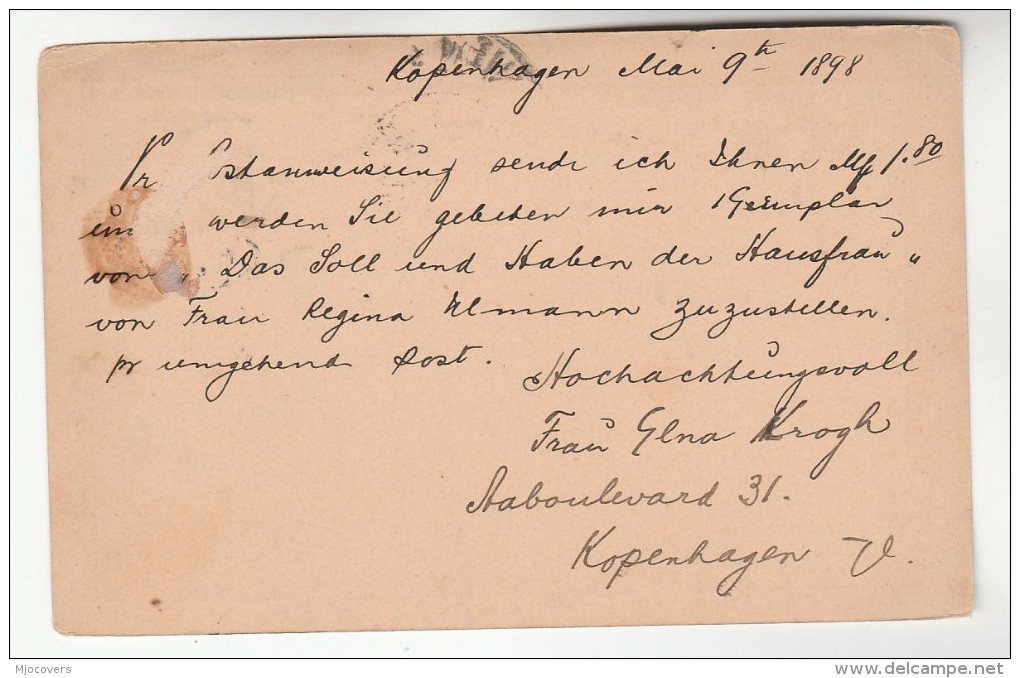 Kopenhagen Mai 9th 1898
Pr stanweisung sende ich Ihnen Mk 1.80
werden Sie gebeten mir 1 Exemplar
von „Das Soll und Haben der Hausfrau"
von Frau Regina Ulmann zuzustellen.
pr umgehend Post.
Hochachtungsvoll
Frau Elna Krogh
Aaboulevard 31.
Kopenhagen V.
Mjocovers
www.delcampe.net